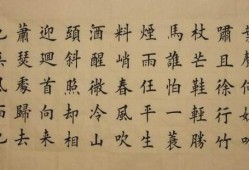 嘯且徐行竹
杖芒鞋輕勝
馬誰怕一蓑
煙雨任平生
料峭春風吹
酒醒微冷山
頭斜照却相
迎迴首向來
蕭瑟處歸去
也無風